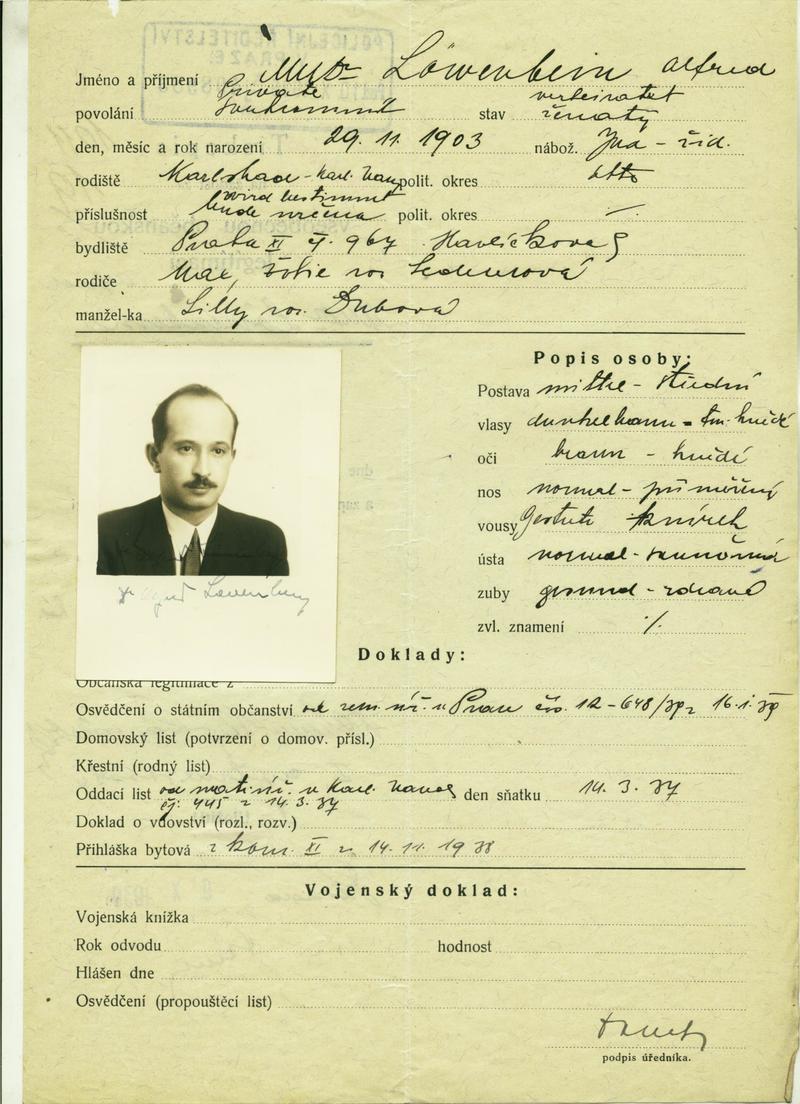 Jméno a příjmení MUDr Löwenbein Alfred
Private
verheiratet
povolání stav ženatý
den, měsíc a rok narození 29. 11. 1903 nábož. Jud - žid.
rodiště Karlsbad - Karl. Vary polit. okres dtto
wird bestimmt
příslušnost bude určena polit. okres
bydliště Praha XI č. 967 Havlíčkova
rodiče Max, Žofie roz.
manžel-ka Lilly roz. Dubová
Popis osoby:
Postava mittel - střední
vlasy dunkelbraun - tm. hnědé
oči braun - hnědé
nos normal - přiměřený
vousy gestutzt knírek
ústa normal - souměrná
zuby gesund - zdravé
zvl. znamení
Dr Löwenbein
Doklady:
Občanská legitimace z
Osvědčení o státním občanství od zem. úř. v Praze čís. 12-648/39 z 16. 1. 39
Domovský list (potvrzení o domov. přísl.)
Křestní (rodný list)
Oddací list od mat. úř. v Karl. Varech den sňatku 14. 3. 37
čj. 445 z 14. 3. 37
Doklad o vdovství (rozl., rozv.)
Přihláška bytová z kom. XI z 14. 11. 1938
Vojenský doklad:
Vojenská knížka
Rok odvodu hodnost
Hlášen dne
Osvědčení (propouštěcí list)
podpis úředníka.